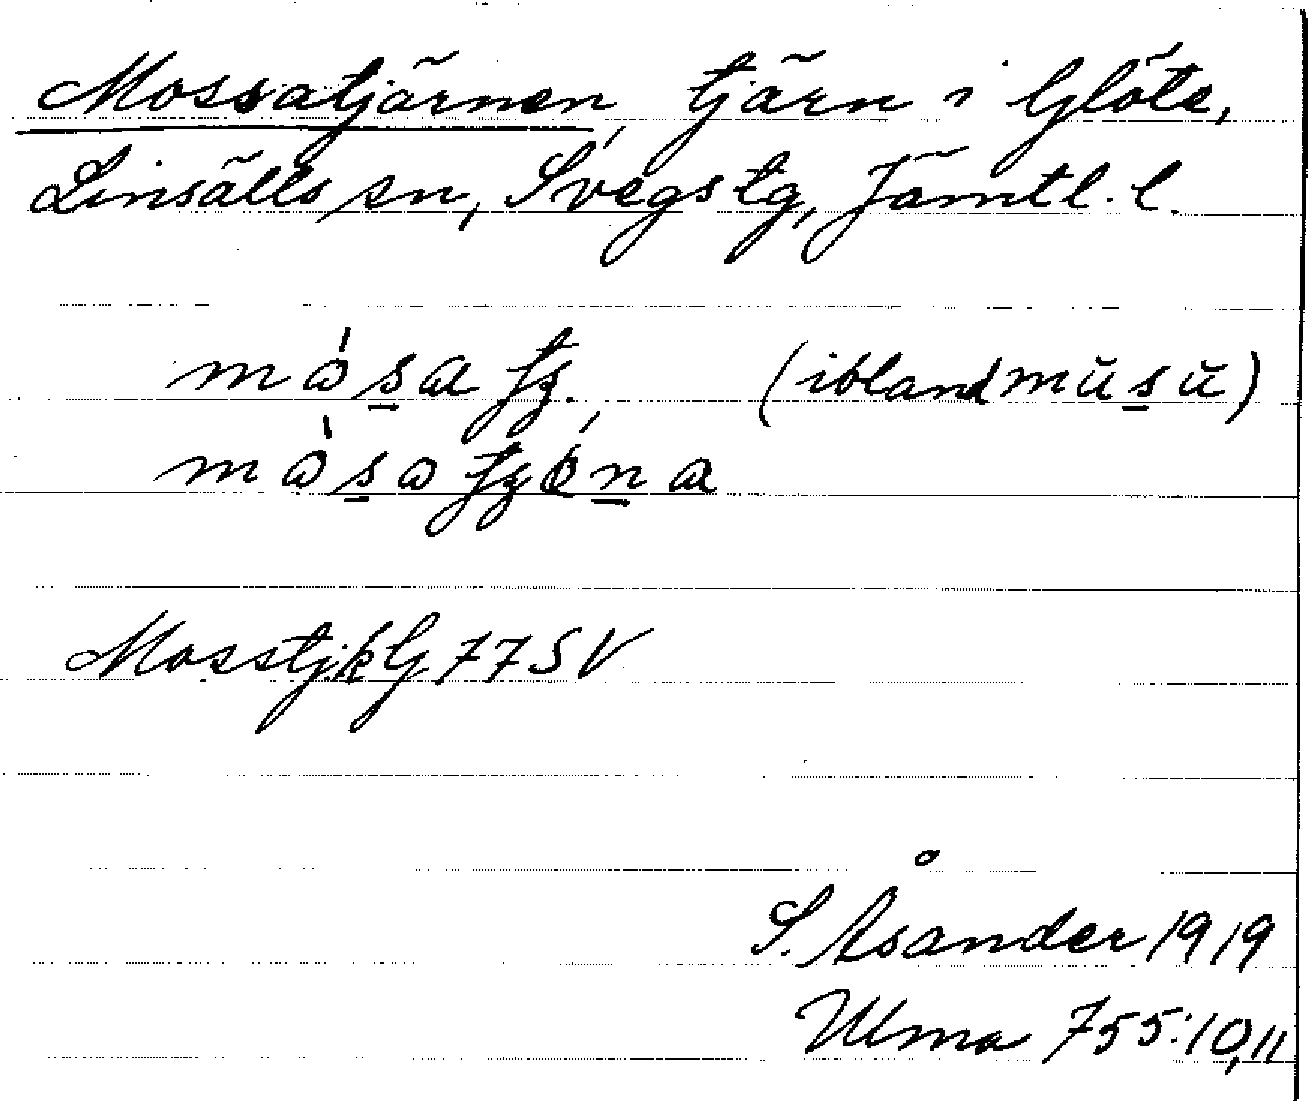 Mossatjärnen, tjärn i Glöte,
Linsälls sn, Svegs tg, Jämtl. l.
(ibland mŭsŭ)
Mosstj kG 77 SV
S. Åsander 1919
Ulma 755:10,11